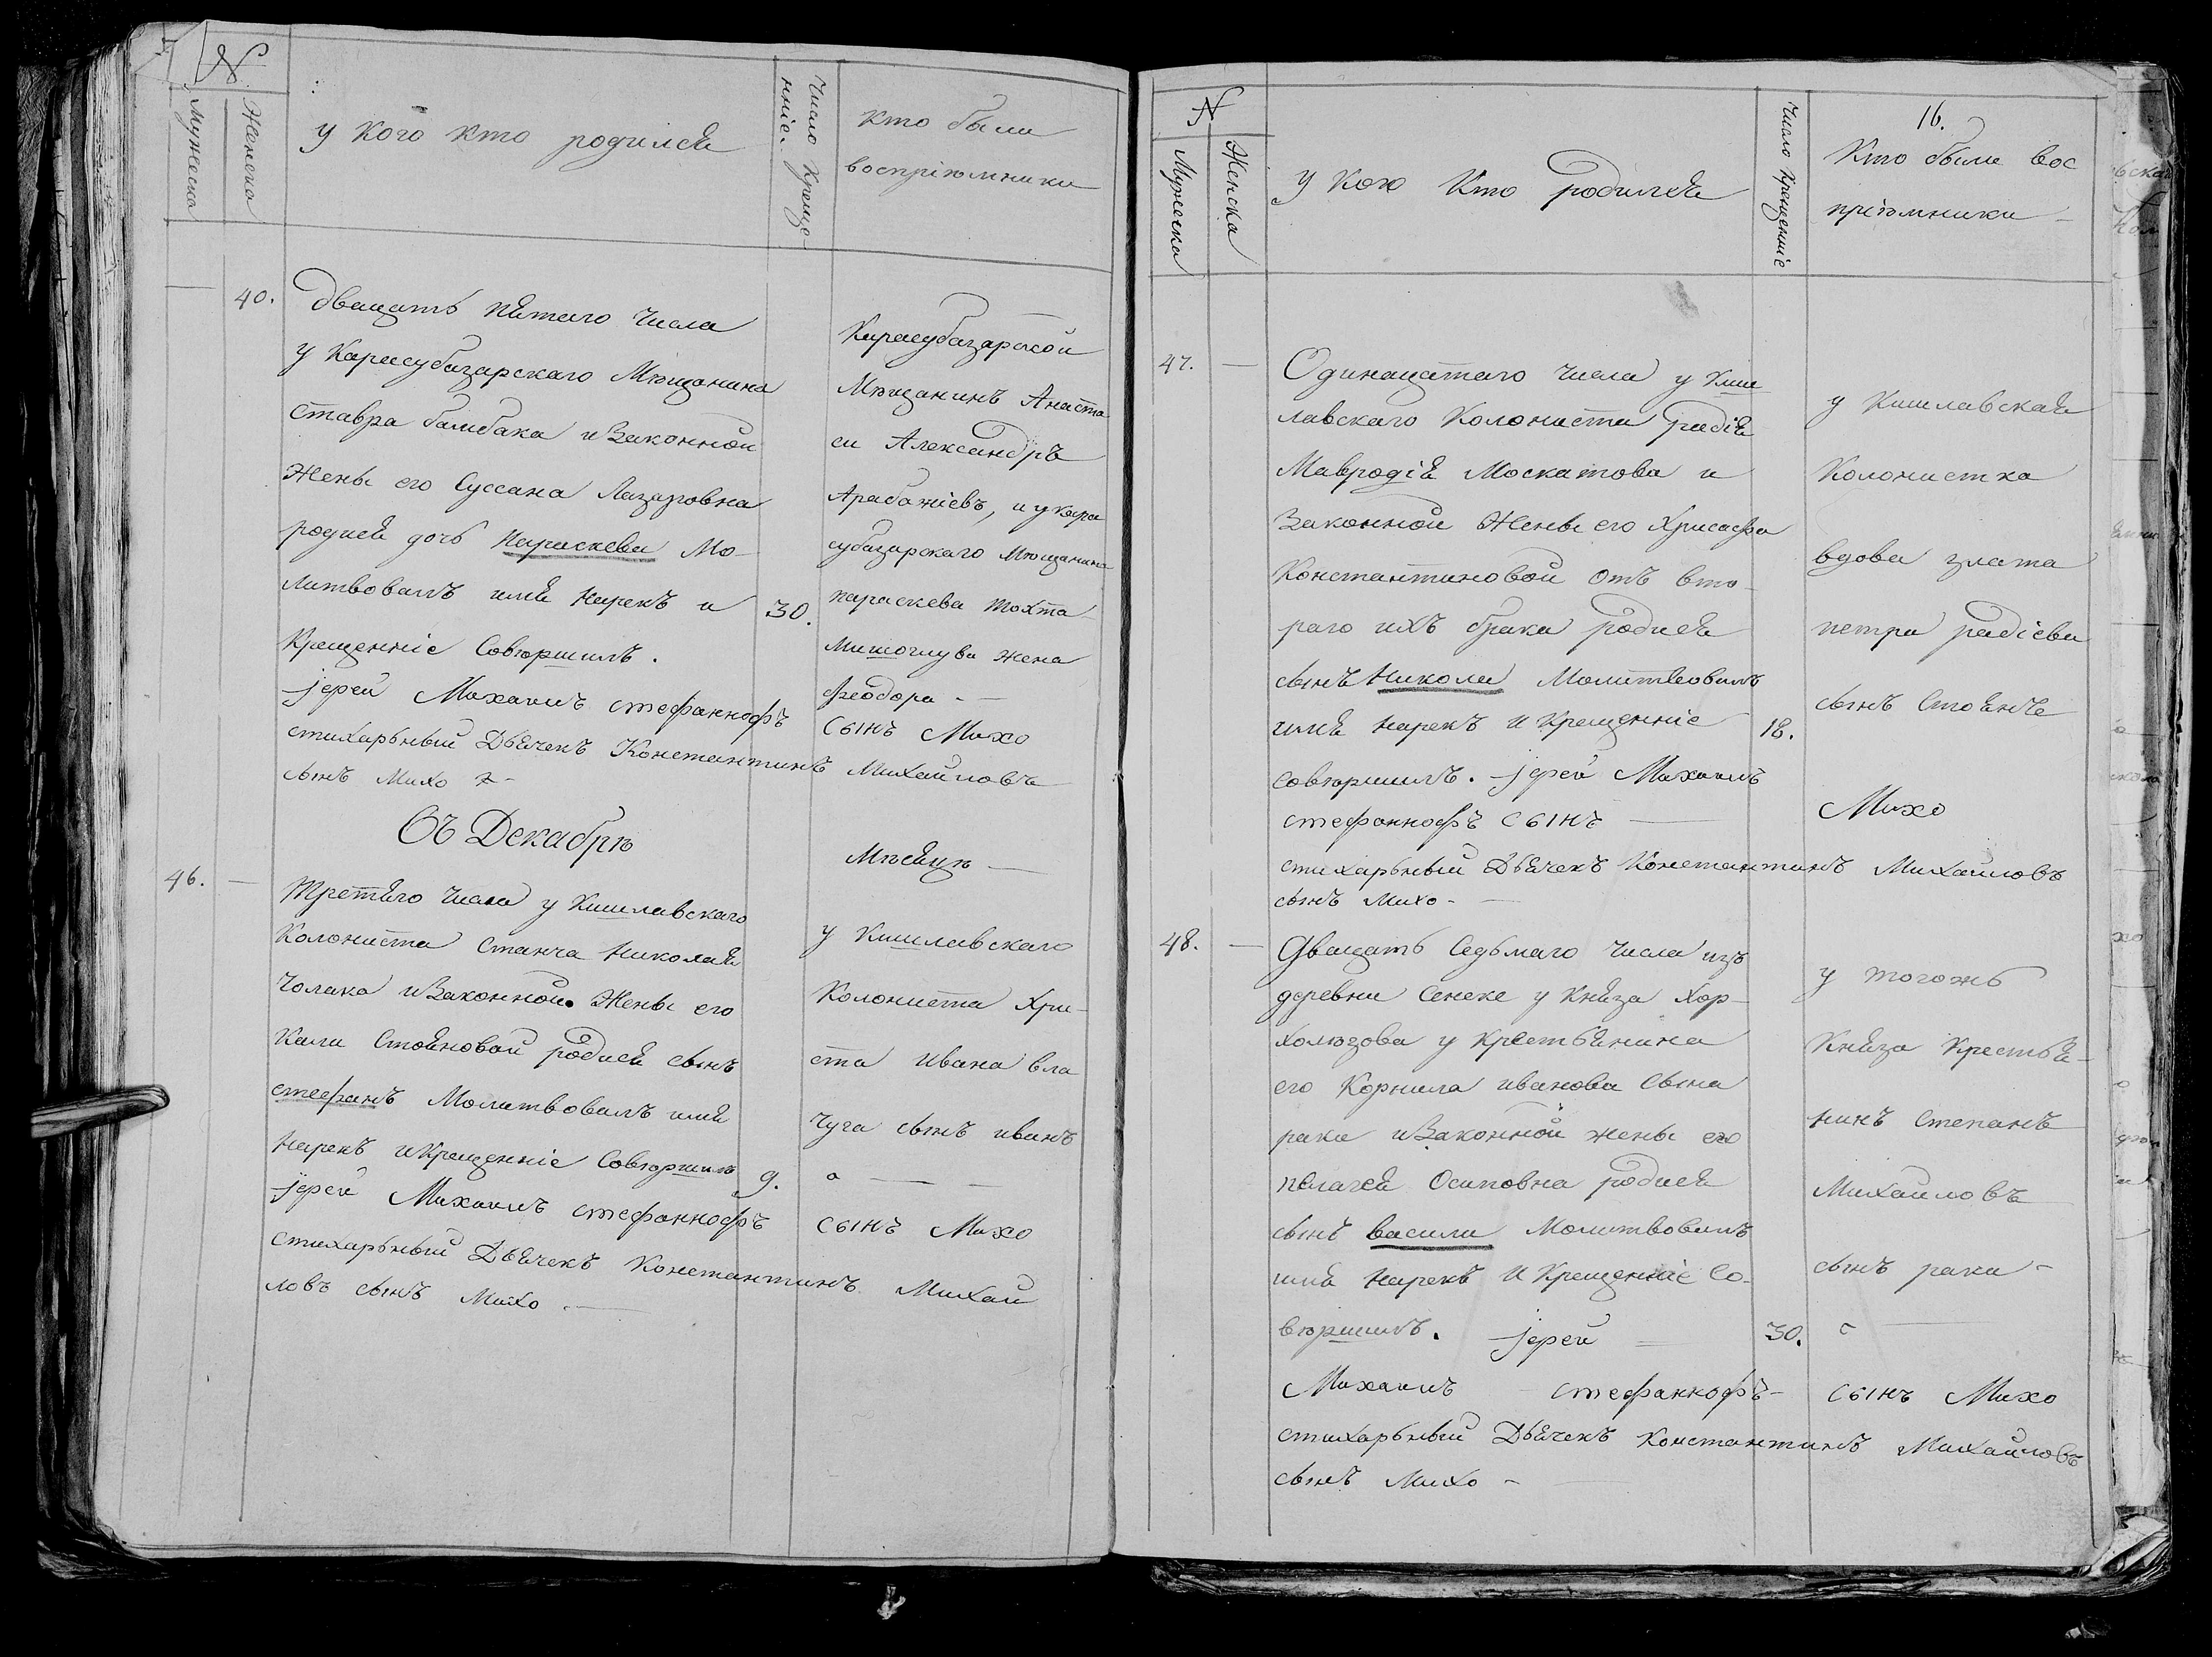 №
Мужеска
Женска
у кого кто родился
Число Креще-
нніе.
кто были
воспріемники
40.
двацать пятаго числа
у Карасубазарскаго Мѣщанина
Ставра бамбака и Законной
Жены его Сусана Лазаровна
родися дочь Параскева Мо-
литвовалъ имя нарекъ и
Крещенніе Совершилъ.
Іерей Михаилъ стефанкофъ
стихарьный Дьячекъ Константинъ Михайловъ
сынъ Михо
30.
Карасубазарской
Мѣщанинъ Анаста
си Александръ
Арабажіевъ, и у кара
субазарскаго Мѣщанина
параскева тохта
Мишоглува жена
феодора -
Сынъ Михо
Съ Декабря
Мѣсяця
46.
Третяго числа у Кишлавскаго
Колониста Станча Николая
Чолака и Законной Жены его
Кали Стояновой родися сынъ
стефанъ Молитвовалъ имя
нарекъ и Крещенніе Совершилъ
9.
Іерей Михаилъ стефанкофъ
Стихарьный Дьячекъ Константинъ Михай
ловъ сынъ Михо.
у Кишлавскаго
Колониста Хри-
ста Ивана вла
чуга сынъ иванъ
а
Сынъ Михо
№
Мужеска
Женска
у кого Кто родился
Число Крещенніе
16.
Кто были вос
пріемники -
47.
Одинацатаго числа у Киш
лавскаго Колониста радія
Мавродія Москатова и
Законной Жены его Хрисафа
Константиновой отъ вто-
раго ихъ брака родися
сынъ Николи Молитвовалъ
имя нарекъ и Крещенніе
18.
совершилъ. Іерей Михаилъ
стефанкофъ Сынъ
стихарьный Дьячекъ Константинъ Михайловъ
сынъ Михо -
у Кишлавская
Колонистка
вдова злата
петра радіева
сынъ Стоянче
Михо
48.
Двацать Седьмаго числа изъ
деревни Сенеке у Княза Хор-
холюзова у Крестьянина
его Корнила иванова сына
раки и Законной жены его
пелагея Осиповна родися
сынъ васили Молитвовалъ
имя нарекъ и Крещенніе Со-
вершилъ. Іерей
30.
Михаилъ стефанкофъ -
стихарьный Дьячекъ Константинъ Михайловъ
сынъ Михо -
у тогожъ
Княза Крестья-
нинъ Степанъ
Михайловъ
сынъ раки -
Сынъ Михо